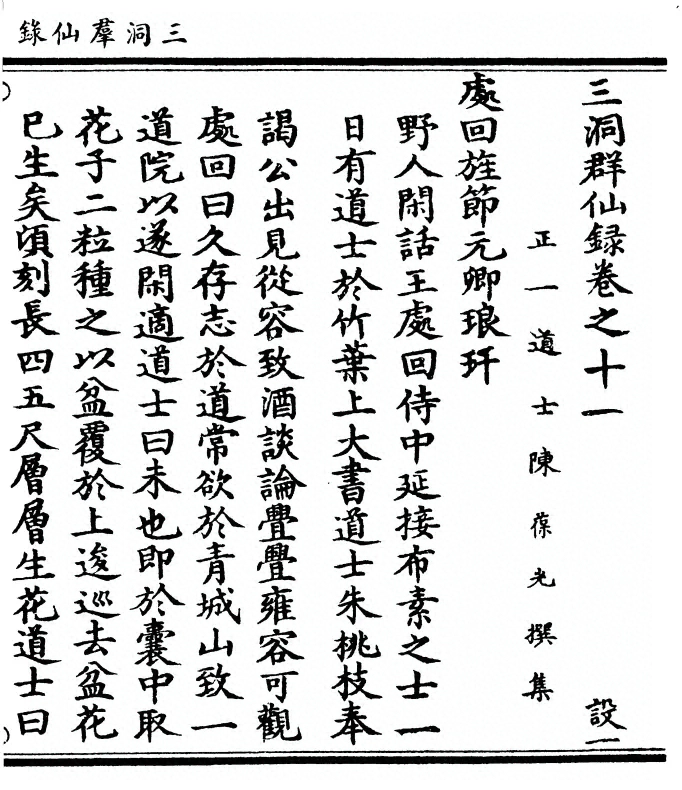 三洞羣仙錄
三洞群仙録卷之十一
設一
正一道士陳葆光撰集
處回旌節元卿琅玕
野人閑話王處回侍中延接布素之士一
日有道士於竹葉上大書道士朱桃枝奉
謁公出見從容致酒談論疊疊雍容可觀
處回曰久存志於道常欲於青城山致一
道院以遂閑適道士曰未也即於囊中取
花子二粒種之以盆覆於上逡巡去盆花
巳生矣頃刻長四五尺層層生花道士曰